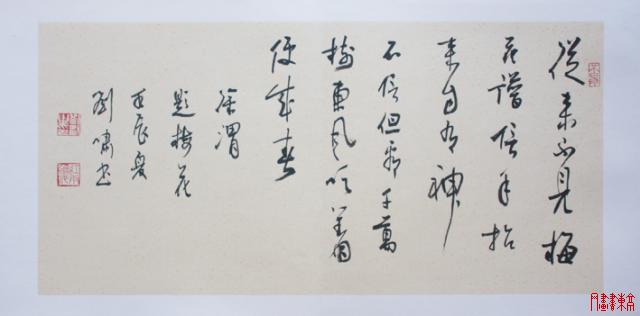 從來不見梅
花譜信手拈
來自有神
不信但看千萬
樹東風吹著
便成春
徐渭
題梅花
壬辰夏
劉嘯書